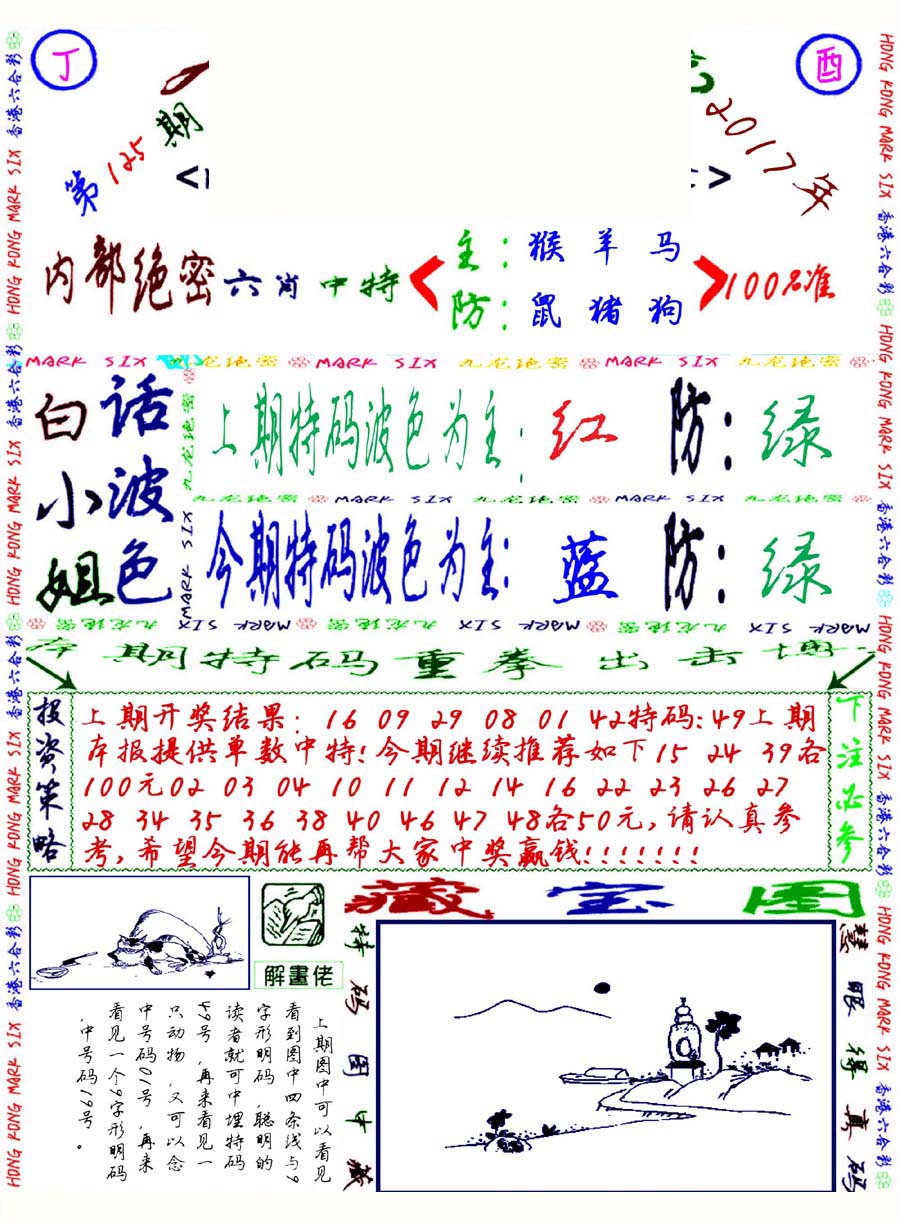 丁
酉
第125期
2017年
内部绝密六肖中特
主：猴 羊 马
防：鼠 猪 狗
100%准
MARK SIX 九龙绝密 MARK SIX 九龙绝密 MARK SIX 九龙绝密
白话
小波
姐色
上期特码波色为主：红 防：绿
九龙绝密 MARK SIX 九龙绝密 MARK SIX 九龙绝密
今期特码波色为主：蓝 防：绿
九龙绝密 MARK SIX
九龙绝密 MARK SIX 九龙绝密 MARK SIX 九龙绝密 MARK SIX
本期特码重拳出击博
投资策略
上期开奖结果： 16 09 29 08 01 42特码:49上期
本报提供单数中特!今期继续推荐如下15 24 39各
100元02 03 04 10 11 12 14 16 22 23 26 27
28 34 35 36 38 40 46 47 48各50元,请认真参
考,希望今期能再帮大家中奖赢钱!!!!!!!
下注必参
解畫佬
藏宝图
上期图中可以看见
看到图中四条线与9
字形明码，聪明的
读者就可中埋特码
49号，再来看见一
只动物，又可以念
中号码01号，再来
看见一个9字形明码
，中号码19号。
特码图中藏
慧眼得真码
香港六合彩 HONG KONG MARK SIX 香港六合彩 HONG KONG MARK SIX 香港六合彩 HONG KONG MARK SIX 香港六合彩 HONG KONG MARK SIX
HONG KONG MARK SIX 香港六合彩 HONG KONG MARK SIX 香港六合彩 HONG KONG MARK SIX 香港六合彩 HONG KONG MARK SIX 香港六合彩